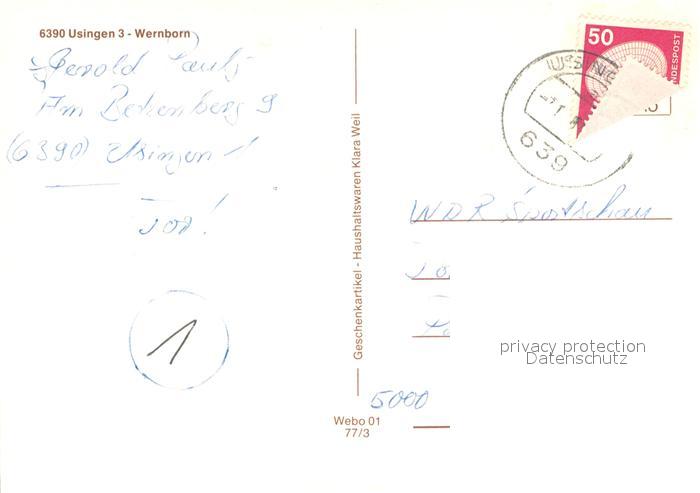 6390 Usingen 3 - Wernborn
Gerold
Am 9
(6390) Usingen 1
Tor!
1
Geschenkartikel - Haushaltswaren Klara Weil
Webo 01
77/3
50
NDESPOST
639
WDR Sportschau
5000
privacy protection
Datenschutz